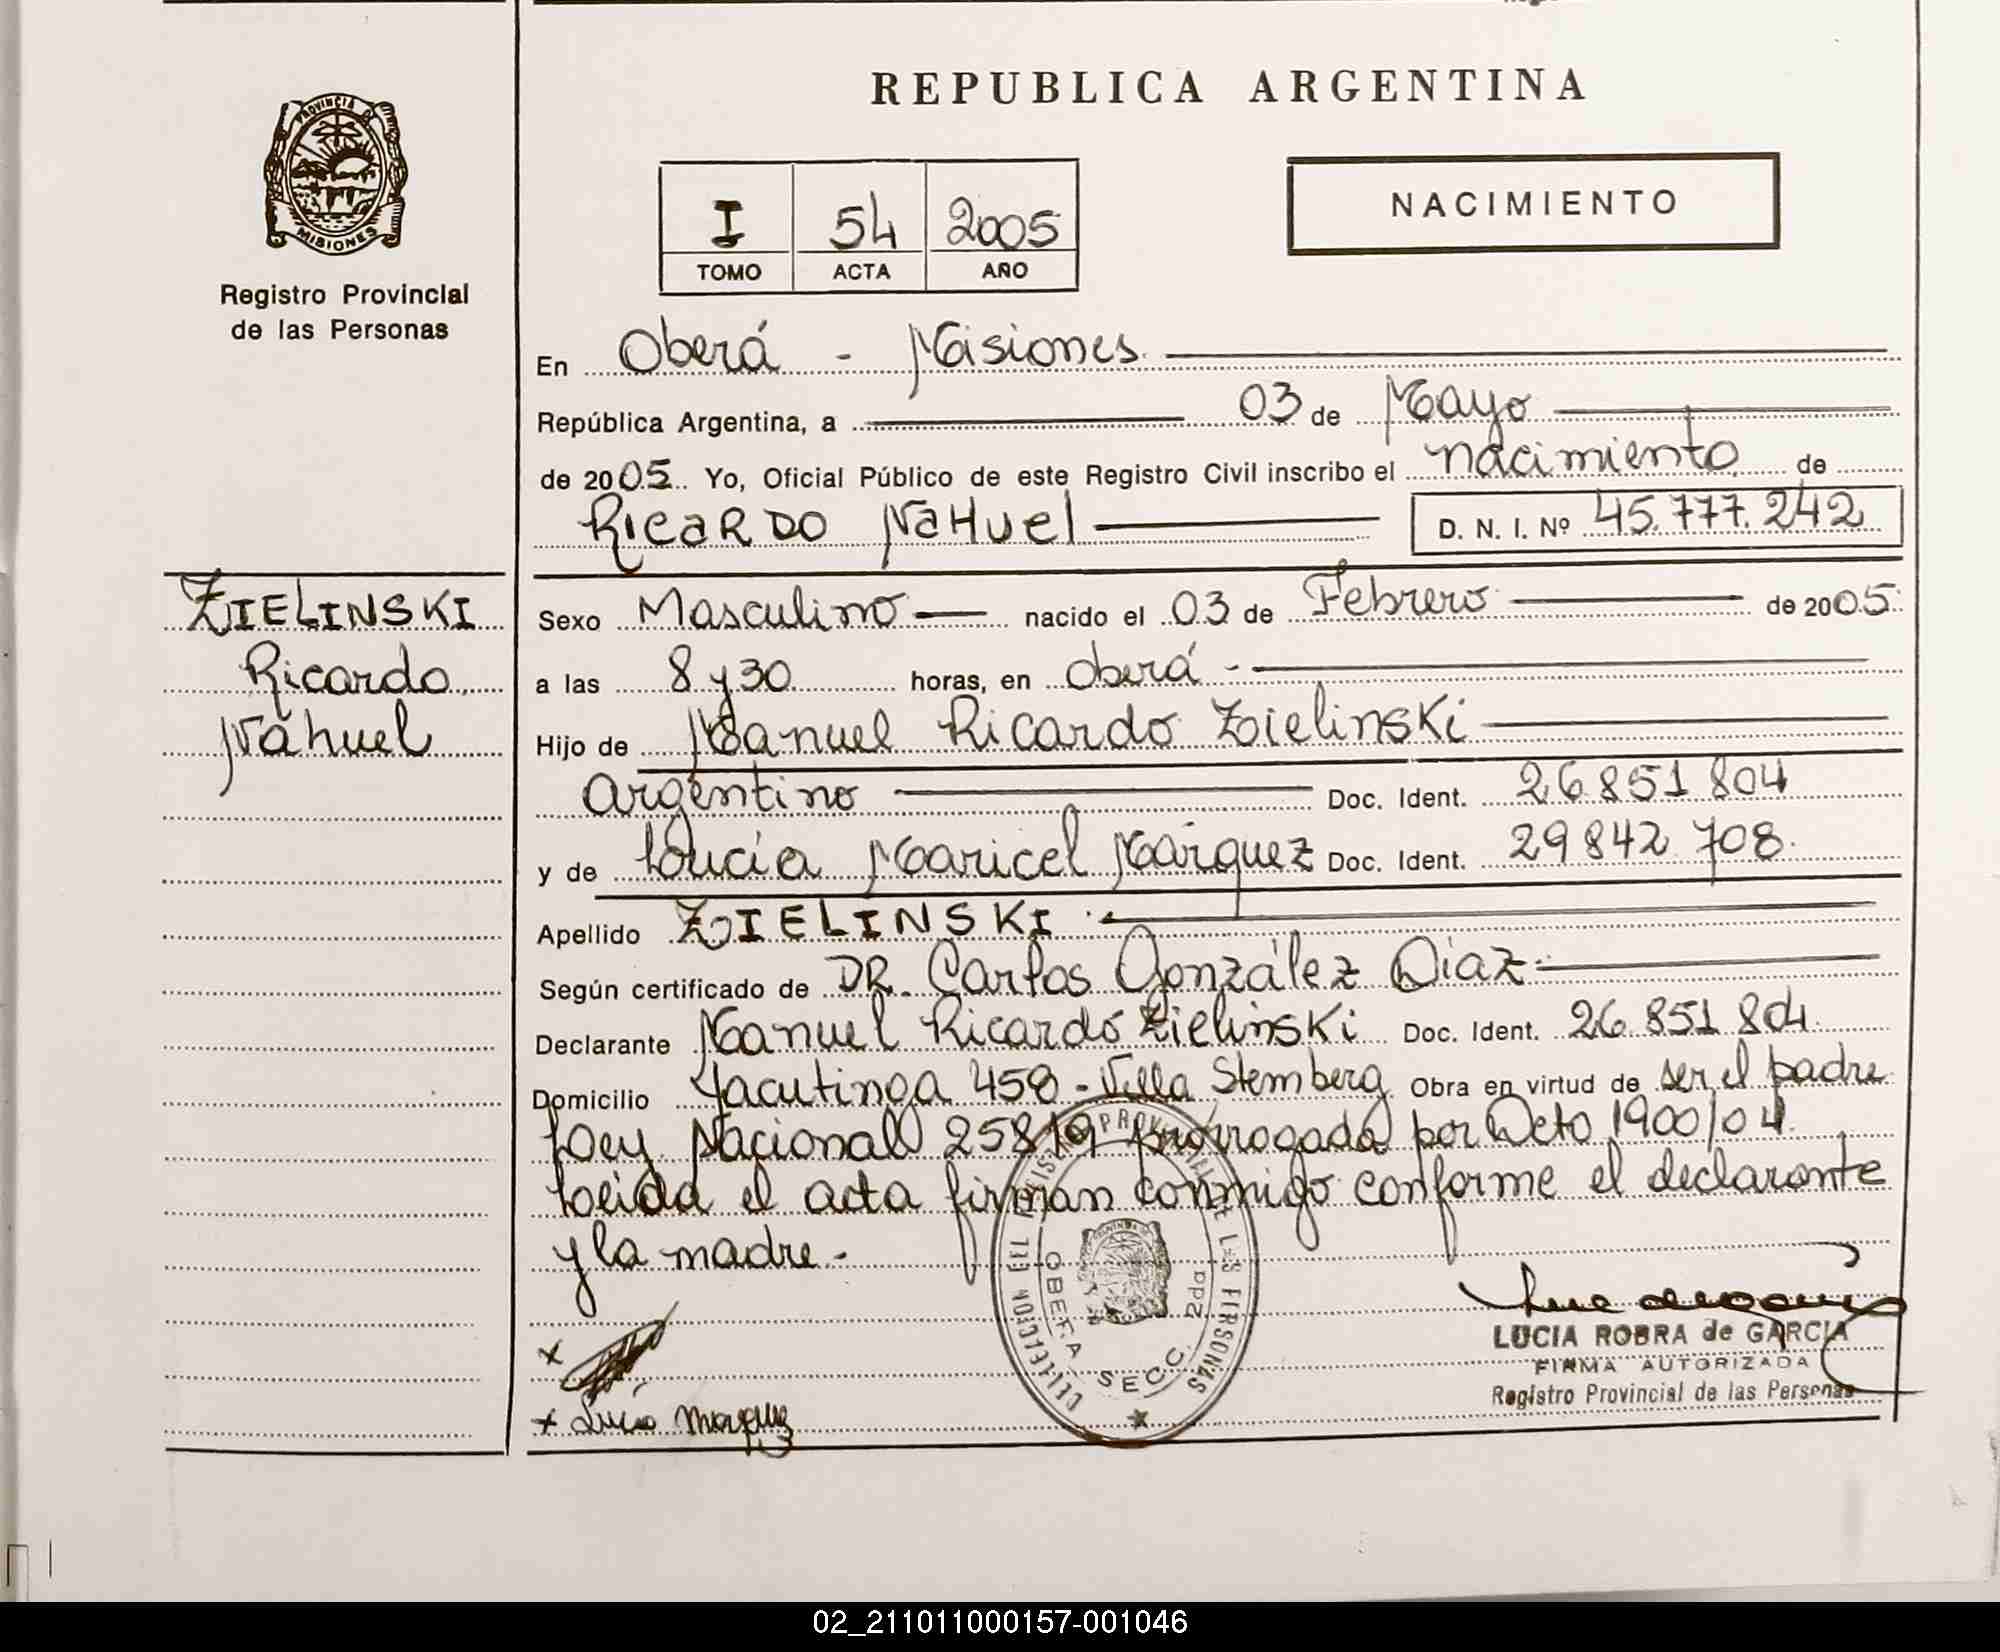 REPUBLICA ARGENTINA
PROVINCIA DE
MISIONES
Registro Provincial
de las Personas
I 54 2005
TOMO ACTA AÑO
NACIMIENTO
En Oberá - Misiones.
República Argentina, a 03 de Mayo
de 2005. Yo, Oficial Público de este Registro Civil inscribo el nacimiento de
RICARDO NAHUEL D. N. I. Nº 45.777.242
ZIELINSKI
Ricardo
Nahuel
Sexo Masculino nacido el 03 de Febrero de 2005.
a las 8 y 30 horas, en Oberá -
Hijo de Manuel Ricardo Zielinski
Argentino Doc. Ident. 26 851 804
y de Lucía Maricel Márquez Doc. Ident. 29842 708.
Apellido ZIELINSKI
Según certificado de DR. Carlos González Diaz
Declarante Manuel Ricardo Zielinski Doc. Ident. 26 851 804
Domicilio Yacutinga 458 - Villa Stemberg Obra en virtud de ser el padre
Ley Nacional 25819 prorrogada por Dcto 1900/04
Leida el acta firman conmigo conforme el declarante
y la madre.-
OBERA SECC. 2da
LUCIA ROBRA de GARCIA
FIRMA AUTORIZADA
Registro Provincial de las Personas
x
x Lucia Marquez
02_211011000157-001046